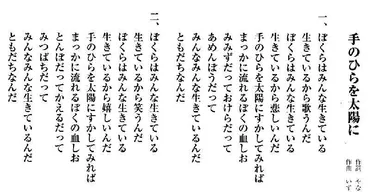 手のひらを太陽に
作詞 やな
作曲 いず
一、ぼくらはみんな生きている
生きているから歌うんだ
ぼくらはみんな生きている
生きているから悲しいんだ
手のひらを太陽にすかしてみれば
まっかに流れるぼくの血しお
みみずだっておけらだって
あめんぼうだって
みんなみんな生きているんだ
ともだちなんだ
二、ぼくらはみんな生きている
生きているから笑うんだ
ぼくらはみんな生きている
生きているから嬉しいんだ
手のひらを太陽にすかしてみれば
まっかに流れるぼくの血しお
とんぼだってかえるだって
みつばちだって
みんなみんな生きているんだ
ともだちなんだ